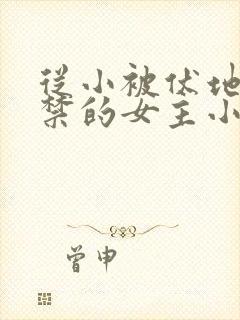 从小被伏地
禁的女主小
曾申